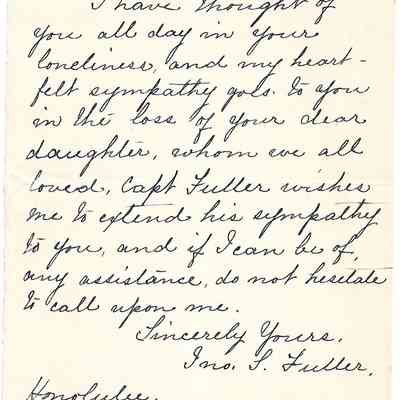 I have thought of
you all day in your
loneliness, and my heart-
felt sympathy goes to you
in the loss of your dear
daughter, whom we all
loved, Capt Fuller wishes
me to extend his sympathy
to you, and if I can be of,
any assistance, do not hesitate
to call upon me.
Sincerely Yours,
Jno. S. Fuller.
Honolulu.